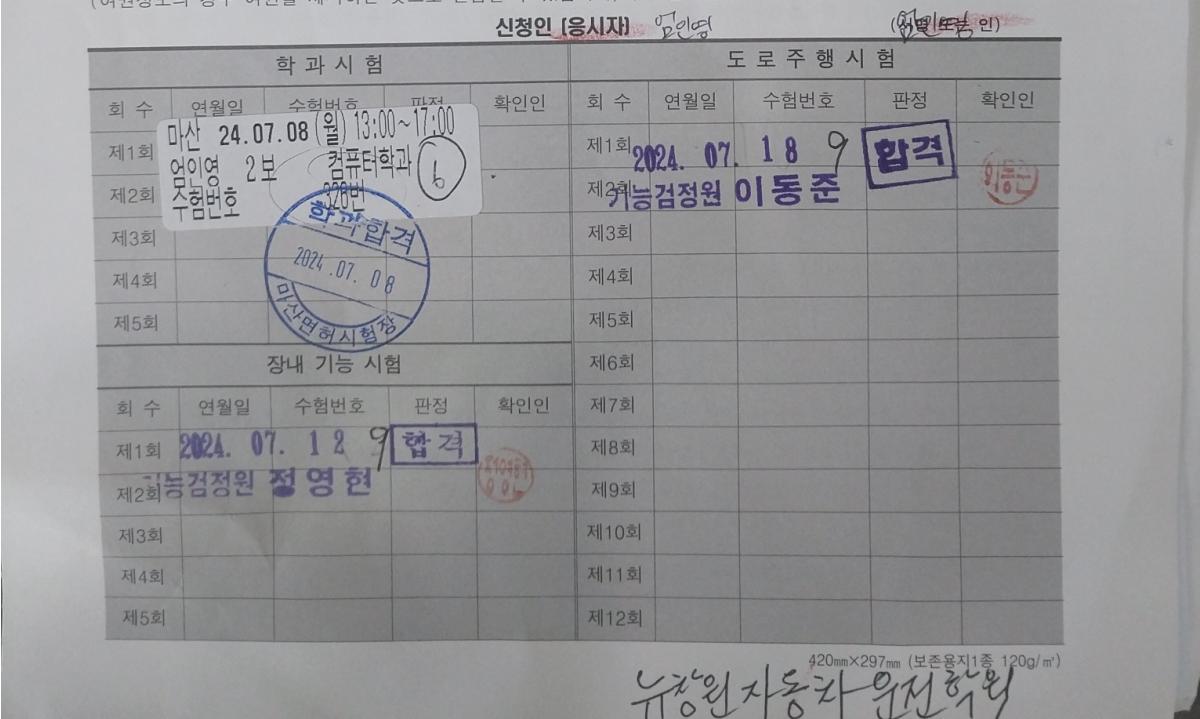 신청인 [응시자] 엄인영 (서명 또는 인)
학 과 시 험
회 수 연월일 수험번호 판정 확인인
마산 24.07.08 (월) 13:00~17:00
엄인영 2보 컴퓨터학과 6
수험번호 328번
제1회
제2회
제3회
제4회
제5회
학과합격
2024.07.08
마산면허시험장
장내 기능 시험
회 수 연월일 수험번호 판정 확인인
제1회 2024. 07. 12 9 합격
제2회 기능검정원 정영현
제3회
제4회
제5회
도 로 주 행 시 험
회 수 연월일 수험번호 판정 확인인
제1회 2024. 07. 18 9 합격
제2회 기능검정원 이동준
제3회
제4회
제5회
제6회
제7회
제8회
제9회
제10회
제11회
제12회
420㎜×297㎜ (보존용지1종 120g/㎡)
뉴창원자동차운전학원